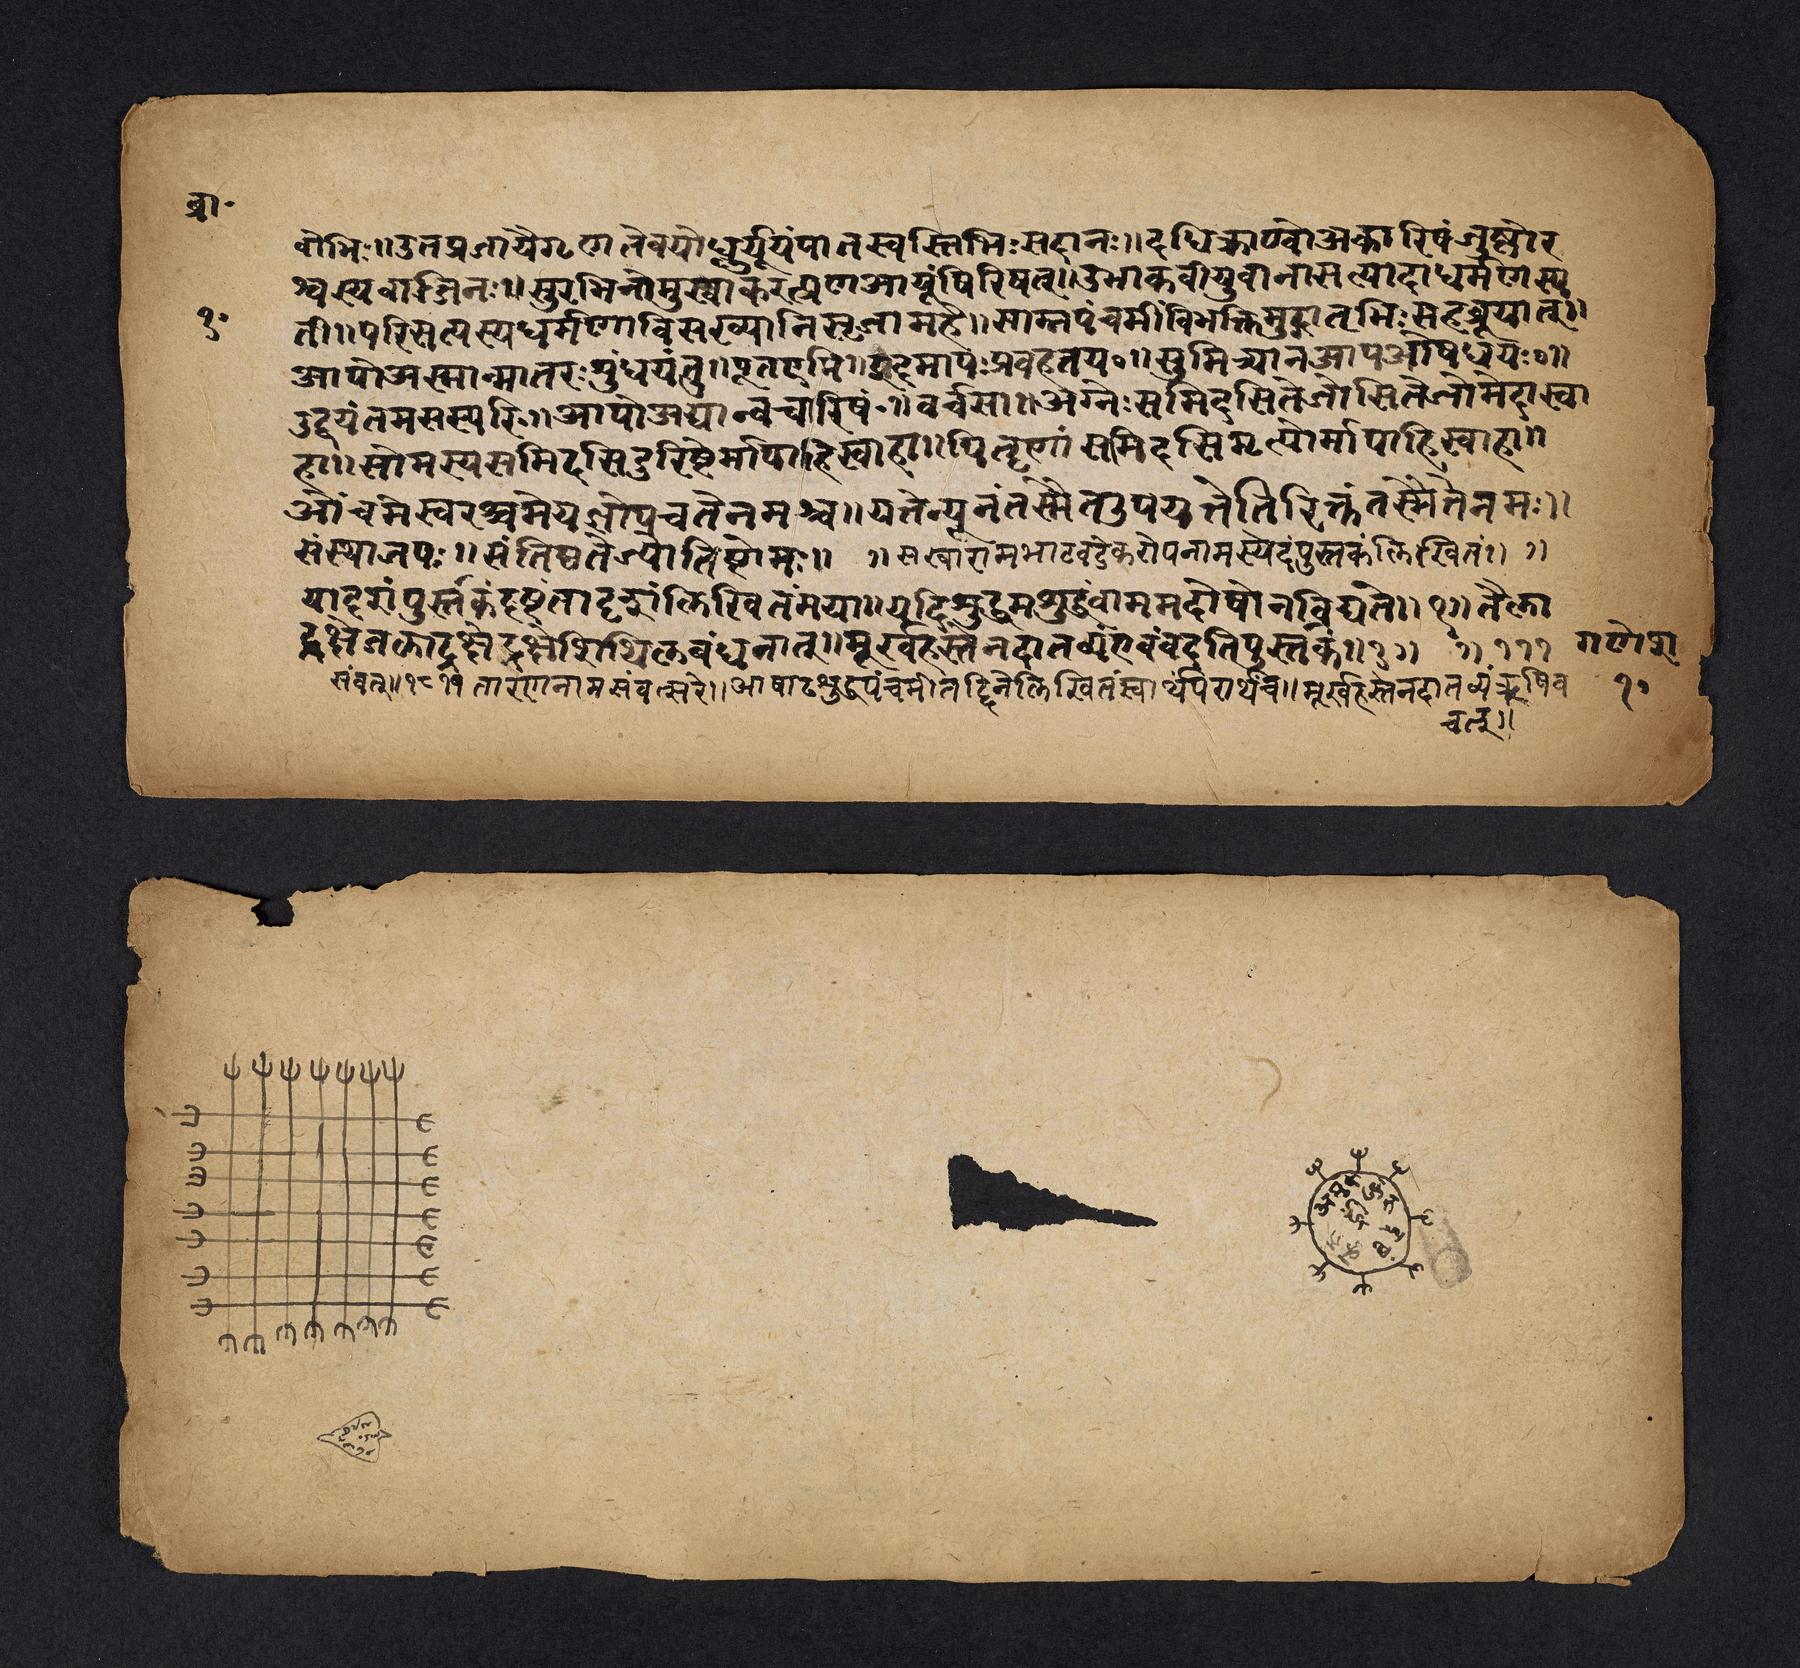 ब्रा॰
वोभिः॥उतप्रजायैगृणतेवयोधुर्यूयंपातस्वस्तिभिःसदानः॥दधिक्राव्णोअकारिषंजिष्णोर
श्वस्यवाजिनः॥सुरभिनोमुखाकरत्प्रणआयूंषितारिषत्॥उभाकवीयुवानासत्यादाधर्मणस्प
१०
ती॥परिसत्यस्यधर्मणाविसख्यानिसृजामहे॥साम्नपंचमींविभक्तिमुद्गातृभिःसहब्रूयात्॥
आपोअस्मान्मातरःशुंधयंतु॥पूतएमि॥इदमापःप्रवहतय०॥सुमित्र्यानआपओषधयः०॥
उद्वयंतमसस्परि०॥आपोअद्यान्वचारिषं०॥वर्चसा॥अग्नेःसमिदसितेजोसितेजोमेदास्वा
हा॥सोमस्यसमिदसिदुरिष्टेर्मापाहिस्वाहा॥पितॄणांसमिदसिमृत्योर्मापाहिस्वाहा॥
ओंचमेस्वरश्चमेयज्ञोपचतेनमश्च॥यत्तेन्यूनंतस्मैतउपयत्तेतिरिक्तंतस्मैतेनमः॥
संस्थाजपः॥संतिष्ठतेज्योतिष्टोमः॥ ॥सखारामभाटवटुंकरोपनामस्येदंपुस्तकंलिखितं॥ ॥
यादृशंपुस्तकंदृष्ट्वंतादृशंलिखितंमया॥यदिशुद्धमशुद्धंवाममदोषोनविद्यते॥१॥तैला
द्रक्षेजलाद्रक्षेद्रक्षेशिथिलबंधनात्॥मूर्खहस्तेनदातव्यंएवंवदतिपुस्तकं॥२॥ ॥ १११ गणेश
संवत्॥१८११तारणनामसंवत्सरे॥आषाढशुद्धपंचमीतद्दिनेलिखितंस्वार्थंपरार्थंच॥मूर्खहस्तेनदातव्यंऋषिव १०
चत्॥